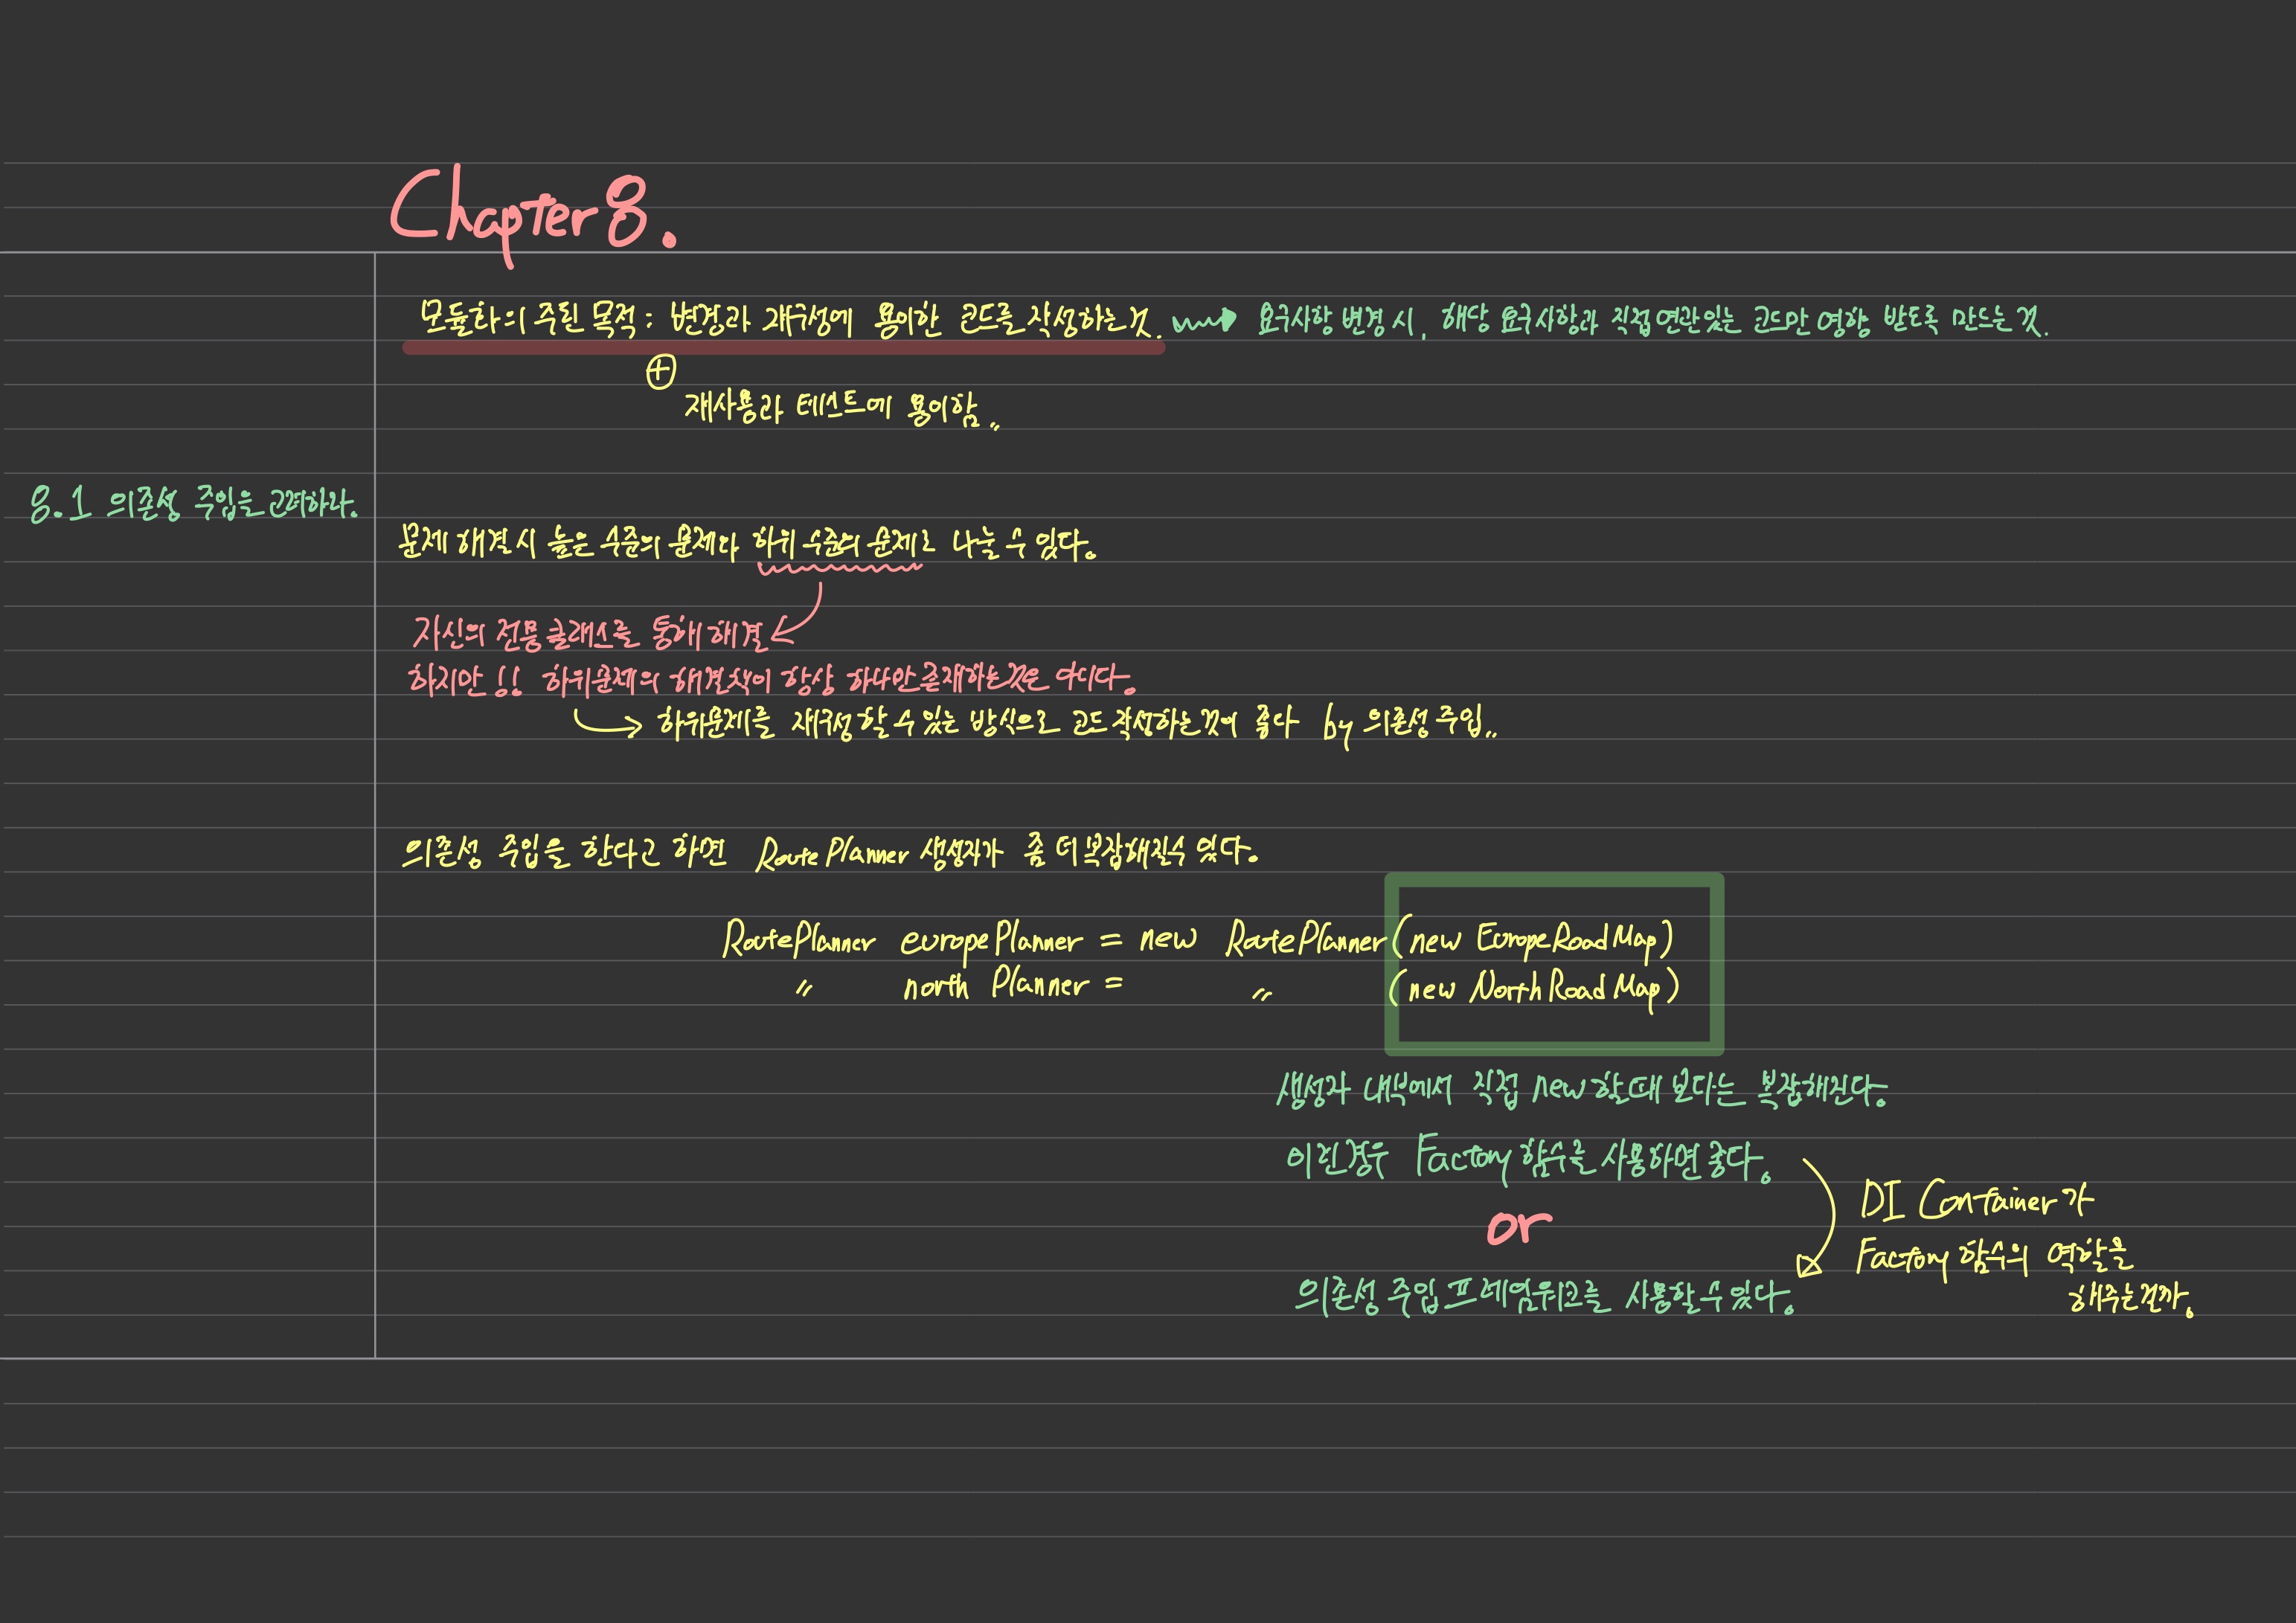 Chapter 8.
모듈화의 주된 목적 : 변경과 재구성에 용이한 코드를 작성하는 것. 요구사항 변경 시, 해당 요구사항과 직접 연관있는 코드만 영향 받도록 만드는 것.
+
재사용과 테스트에 용이함..
8.1 의존성 주입을 고려하라.
문제 해결시 높은 수준의 문제다 하위 수준의 문제로 나눌 수 있다.
자신의 전용 클래스를 통해 해결
하지만 !! 하위문제의 해결책이 항상 하나만 존재하는것은 아니다.
하위문제를 재구성 할 수 있는 방식으로 코드 작성하는것이 좋다 by 의존성 주입..
의존성 주입을 한다고 하면 RoutePlanner 생성자가 좀 더 복잡해질수 있다.
RoutePlanner europePlanner = new RoutePlanner(new EuropeRoadMap)
〃 north Planner = 〃 (new NorthRoadMap)
생성자 내부에서 직접 new할때 보다는 복잡해진다.
이런경우 Factory 함수를 사용하면 좋다.
or
의존성 주입 프레임워크를 사용할 수 있다.
DI Container가
Factory 함수의 역할을
해주는걸까.